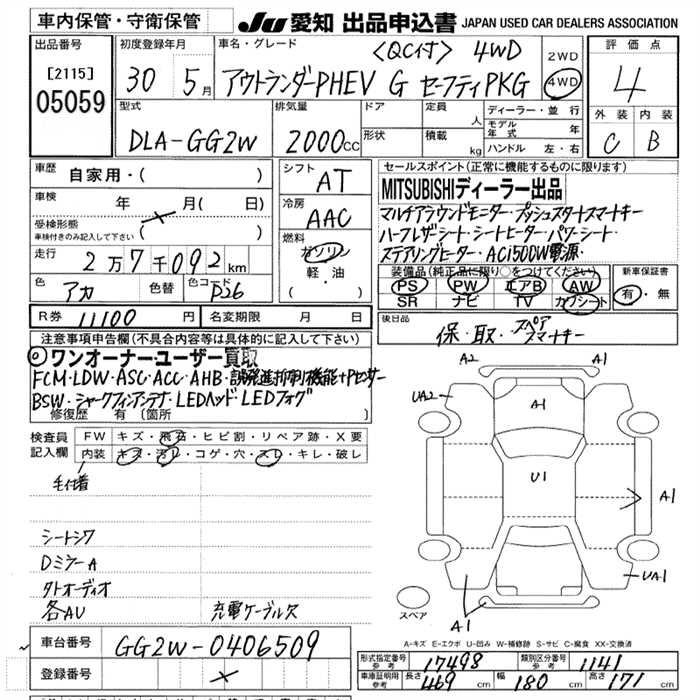 車内保管・守衛保管
JU 愛知 出品申込書 JAPAN USED CAR DEALERS ASSOCIATION
出品番号 [2115] 05059
初度登録年月 30 5月
車名・グレード <QC付> 4WD
アウトランダーPHEV G セーフティPKG
2WD
4WD
評価点 4
外装 内装
C B
型式 DLA-GG2W
排気量 2000cc
ドア 形状
定員 人
積載 kg
ディーラー・並行
モデル年式 年
ハンドル 左・右
車歴 自家用・( )
車検 年 月( 日)
受検形態
車検付きのみ記入して下さい ( )
走行 2万7千092km
色 アカ 色替 色コード P26
R券 11100円 名変期限 月 日
シフト AT
冷房 AAC
燃料 ガソリン
軽・油
( )
セールスポイント(正常に機能するものに限ります)
MITSUBISHIディーラー出品
マルチアラウンドモニター・プッシュスタートスマートキー
ハーフレザーシート・シートヒーター・パワーシート
ステアリングヒーター・AC1500W電源・
装備品(純正品に限り○をつけてください)
PS PW エアB AW
SR ナビ TV カワシート
新車保証書 有・無
後日品 保・取・スペアスマートキー
注意事項申告欄(不具合内容等は具体的に記入して下さい)
◎ワンオーナーユーザー買取
FCM・LDW・ASC・ACC・AHB・誤発進抑制機能+Pセンサー
BSW・シャークフィンアンテナ・LEDヘッド・LEDフォグ
修復歴 有(箇所 )
検査員記入欄
FW キズ・飛石・ヒビ割・リペア跡・X要
内装 キズ・汚レ・コゲ・穴・スレ・キレ・破レ
毛付着
シートシワ
DミラーA
外オーディオ
各AU 充電ケーブルス
A2 A1
UA2 A1
U1
A1
UA1
A1
スペア
A-キズ E-エクボ U-凹み W-補修跡 S-サビ C-腐食 XX-交換済
車台番号 GG2W-0406509
登録番号
形式指定番号 参考 17498 類別区分番号 参考 1141
車庫証明用 参考 長さ 469cm 幅 180cm 高さ 171cm